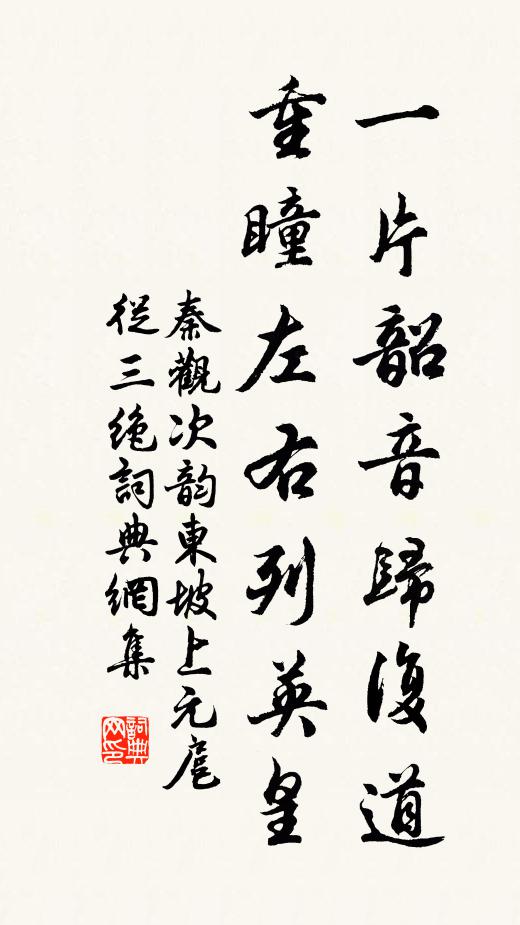 一片韶音歸復道
重瞳左右列英皇
秦觀次韵東坡上元扈
從三绝詞典網集
詞典
网印